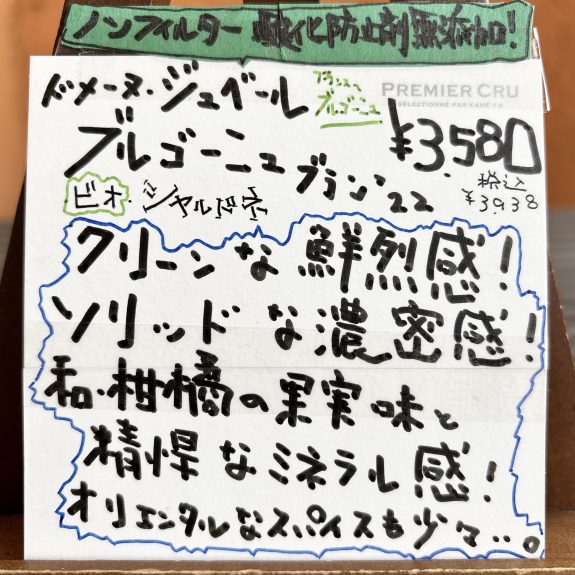 ノンフィルター 酸化防止剤無添加!
ドメーヌ・ジュベール
フランス
ブルゴーニュ
PREMIER CRU
SÉLECTIONNÉ PAR KANÉ Y.K.
ブルゴーニュ ブラン 22
¥3.580
税込
¥3938
ビオ・シャルドネ
クリーンな鮮烈感!
ソリッドな濃密感!
和・柑橘の果実味と
精悍なミネラル感!
オリエンタルなスパイスも少々…。